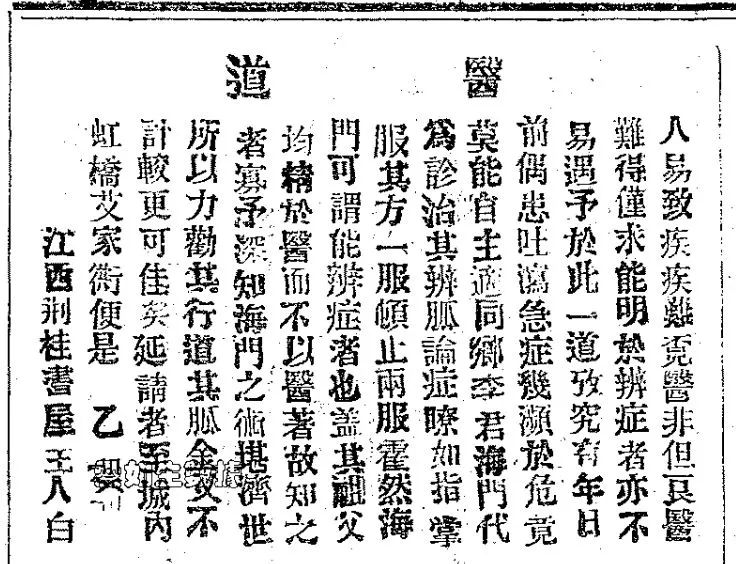 醫道
人易致疾疾難覓醫非但良醫
難得僅求能明於辨症者亦不
易遇予於此一道攷究有年日
前偶患吐瀉急症幾瀕於危竟
莫能自主適同鄉李君海門代
爲診治其辨脈論症瞭如指掌
服其方一服頓止兩服霍然海
門可謂能辨症者也蓋其祖父
均精於醫而不以醫著故知之
者寡予深知海門之術堪濟世
所以力勸其行道其脈金又不
計較更可佳矣延請者至城內
虹橋艾家衖便是 乙
江西荆桂書屋主人白